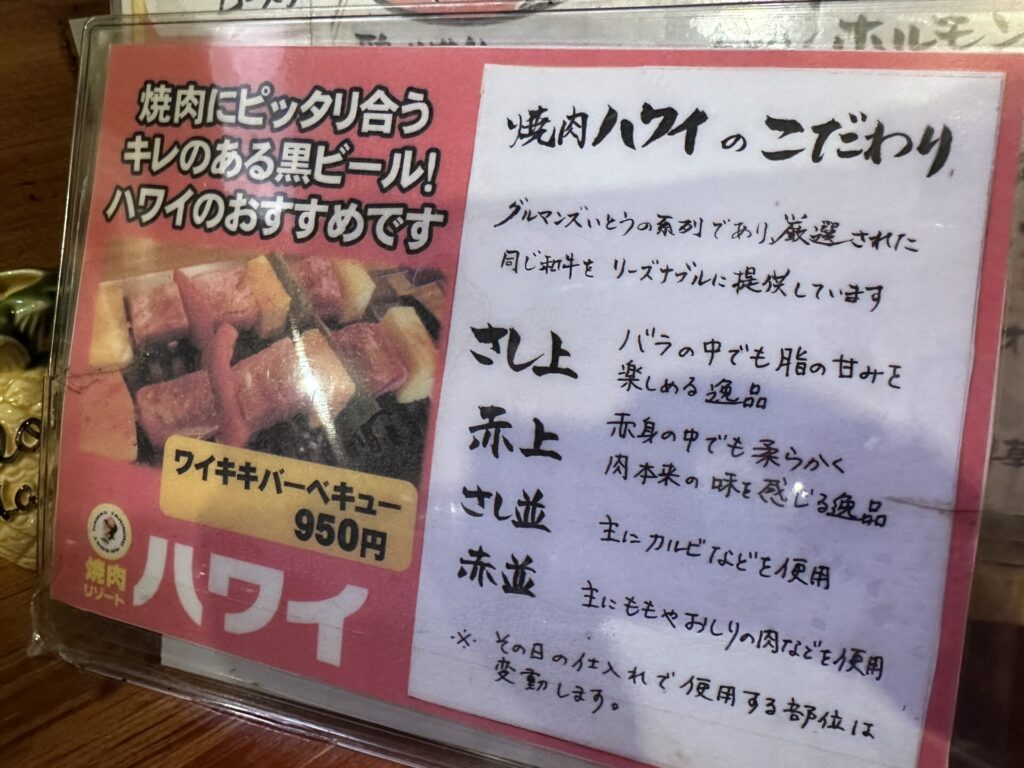 ホルモン
焼肉にピッタリ合う
キレのある黒ビール!
ハワイのおすすめです
ワイキキバーベキュー
950円
焼肉
リゾート
ハワイ
焼肉ハワイのこだわり
グルマンズいとうの系列であり、厳選された
同じ和牛を リーズナブルに提供しています
さし上
バラの中でも脂の甘みを
楽しめる逸品
赤上
赤身の中でも柔らかく
肉本来の味を感じる逸品
さし並
主にカルビなどを使用
赤並
主にももやおしりの肉などを使用
※ その日の仕入れで使用する部位は
変動します。